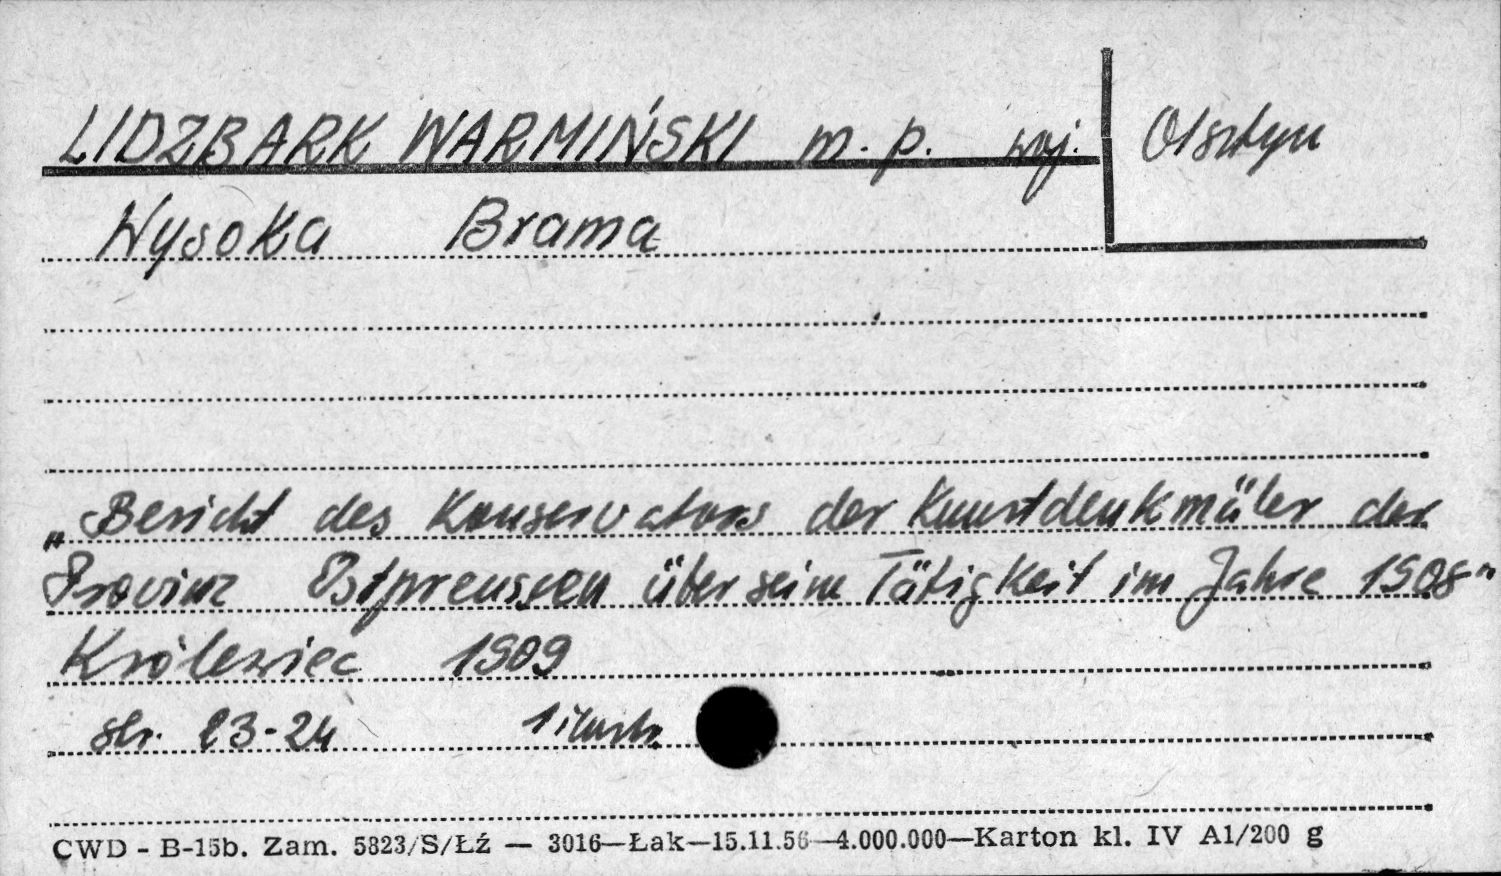 LIDZBARK WARMIŃSKI m. p. woj. Olsztyn
Wysoka Brama
„Bericht des Konservators der Kunstdenkmäler der
Provinz Ostpreussen über seine Tätigkeit im Jahre 1908"
Królewiec 1909
str. 23-24 1 ilustr.
CWD - B-15b. Zam. 5823/S/Łź — 3016—Łak—15.11.56—4.000.000—Karton kl. IV A1/200 g